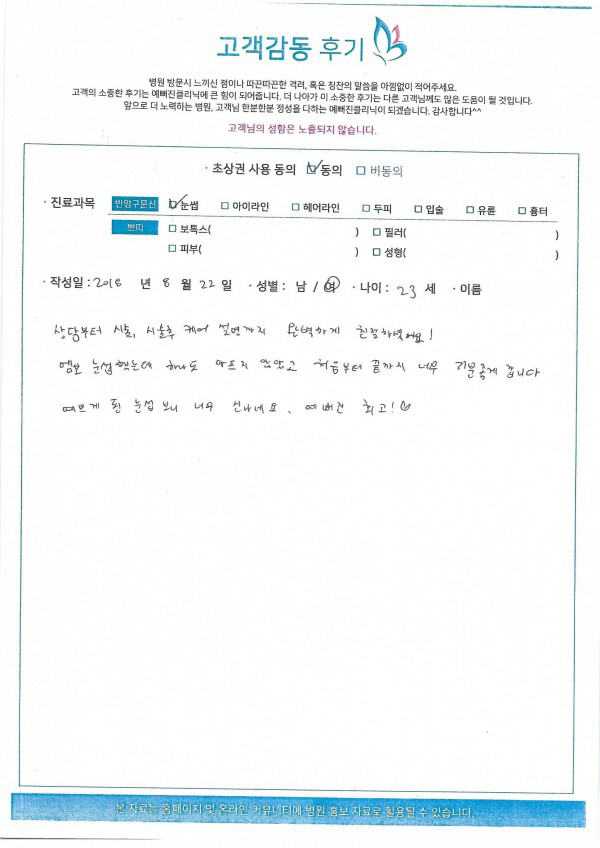 고객감동 후기
병원 방문시 느끼신 점이나 따끈따끈한 격려, 혹은 칭찬의 말씀을 아낌없이 적어주세요.
고객의 소중한 후기는 예뻐진클리닉에 큰 힘이 되어줍니다. 더 나아가 이 소중한 후기는 다른 고객님께도 많은 도움이 될 것입니다.
앞으로 더 노력하는 병원, 고객님 한분한분 정성을 다하는 예뻐진클리닉이 되겠습니다. 감사합니다^^
고객님의 성함은 노출되지 않습니다.
· 초상권 사용 동의 ☑ 동의 □ 비동의
· 진료과목 반영구문신 ☑ 눈썹 □ 아이라인 □ 헤어라인 □ 두피 □ 입술 □ 유륜 □ 흉터
쁘띠 □ 보톡스( ) □ 필러( )
□ 피부( ) □ 성형( )
· 작성일 : 2018 년 8 월 22 일 · 성별 : 남 / 여 · 나이 : 23 세 · 이름
상담부터 시술, 시술후 케어 설명까지 완벽하게 친절하셨어요!
엠보 눈썹했는데 하나도 아프지 않았고 처음부터 끝까지 너무 기분좋게 갑니다
예쁘게 된 눈썹 보니 너무 신나네요. 예뻐진 최고!♡
본 자료는 홈페이지 및 온라인 커뮤니티에 병원 홍보 자료로 활용될 수 있습니다.